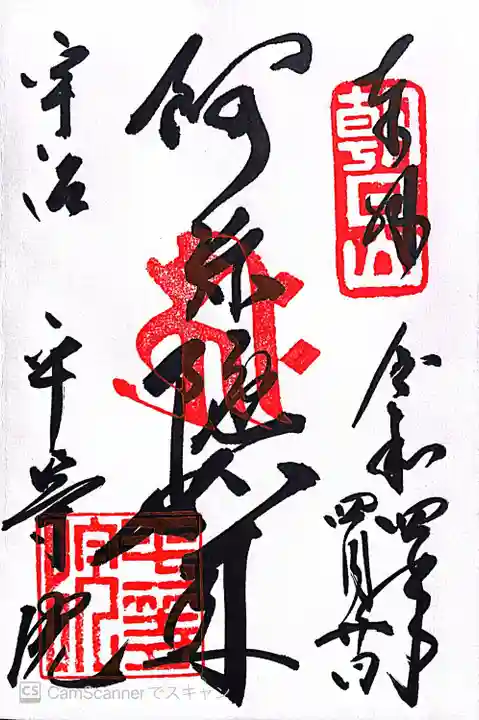 奉拝
朝日山
令和四年
四月
阿弥陀如来
宇治 平等院
平等院
CS CamScannerでスキャン